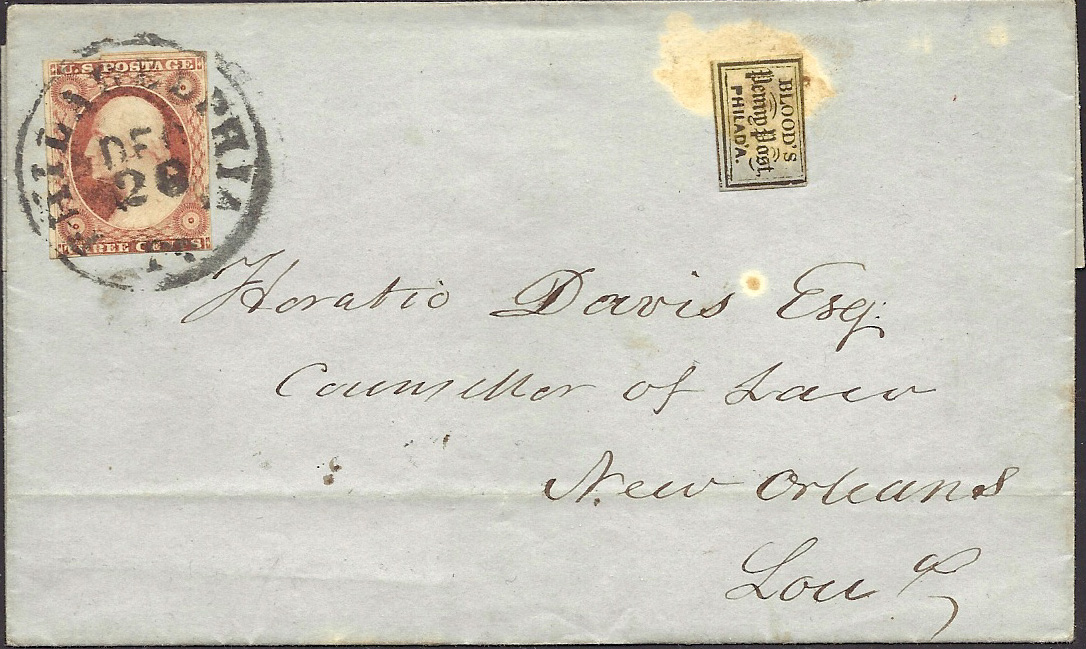 U.S. POSTAGE
THREE CENTS
PHILADELPHIA
DEC
20
Pa.
BLOOD'S
Penny Post,
PHILAD'A.
Horatio Davis Esq.
Counsellor of Law
New Orleans
Lou